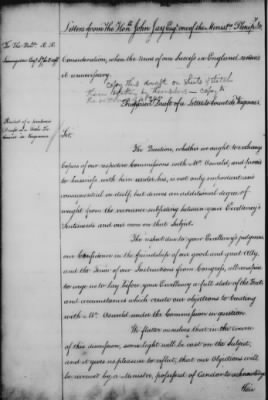 Letters from The Hon.ble John Jay Esq.r one of the Minist.rs Plenip.y &c.
To The Hon.ble R. R.
Livingston Esq.r
Consideration, when the news of our Success in England, renders
it unnecessary.
Copy this draft on Sheets
them
Proposed Draft of a Letter to Count de Vergennes
Draft of a Letter to
Count de Vergennes
Sir,
The Question, whether we ought to exchange
Copies of our respective Commissions with Mr Oswald, and proceed
to business with him under his, is not only important and
consequential in itself, but derives an additional degree of
weight from the variance subsisting between your Excellency's
Sentiments and our own on that Subject.
The respect due to your Excellency's judgment,
our Confidence in the friendship of our good and great Ally,
and the Tenor of our Instructions from Congress, all conspire
to urge us to lay before your Excellency a full state of the Facts
and circumstances which create our objections to treating
with Mr Oswald under the Commission in question.
We flatter ourselves that in the course
of this discussion, some light will be cast on the Subject,
and it gives us pleasure to reflect, that our Objections will
be viewed by a Minister, possessed of Candor to acknowledge
their